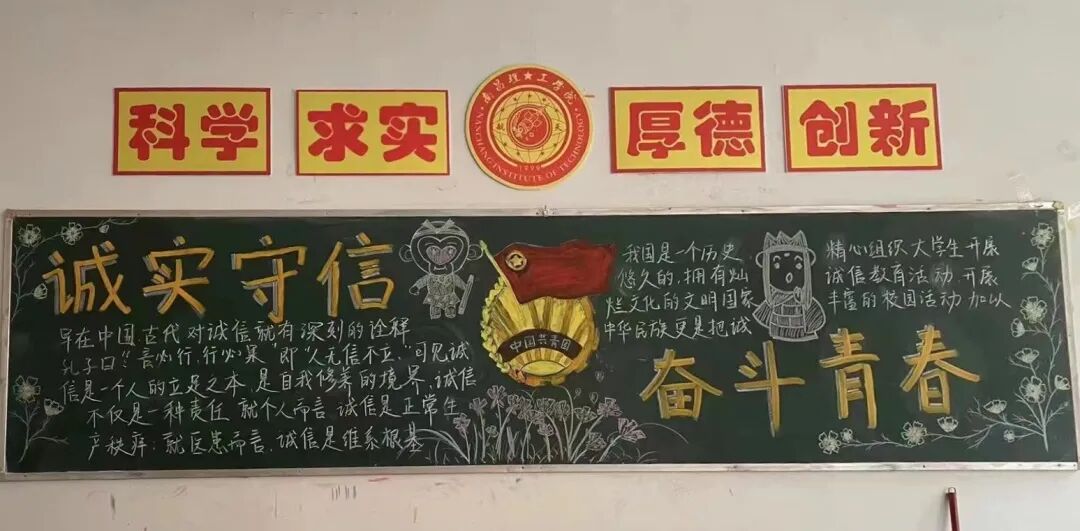 科学
求实
南昌理工学院
NANCHANG INSTITUTE OF TECHNOLOGY
1999
厚德
创新
诚实守信
早在中国古代对诚信就有深刻的诠释
孔子曰"言必行,行必果"即"人无信不立,"可见诚
信是一个人的立足之本 是自我修养的境界,诚信
不仅是一种责任 就个人而言 诚信是正常生
产秩序,就医患而言,诚信是维系根基
中国共青团
我国是一个历史
悠久的,拥有灿
烂文化的文明国家
中华民族更是把诚
精心组织大学生开展
诚信教育活动,开展
丰富的校园活动加以
奋斗青春